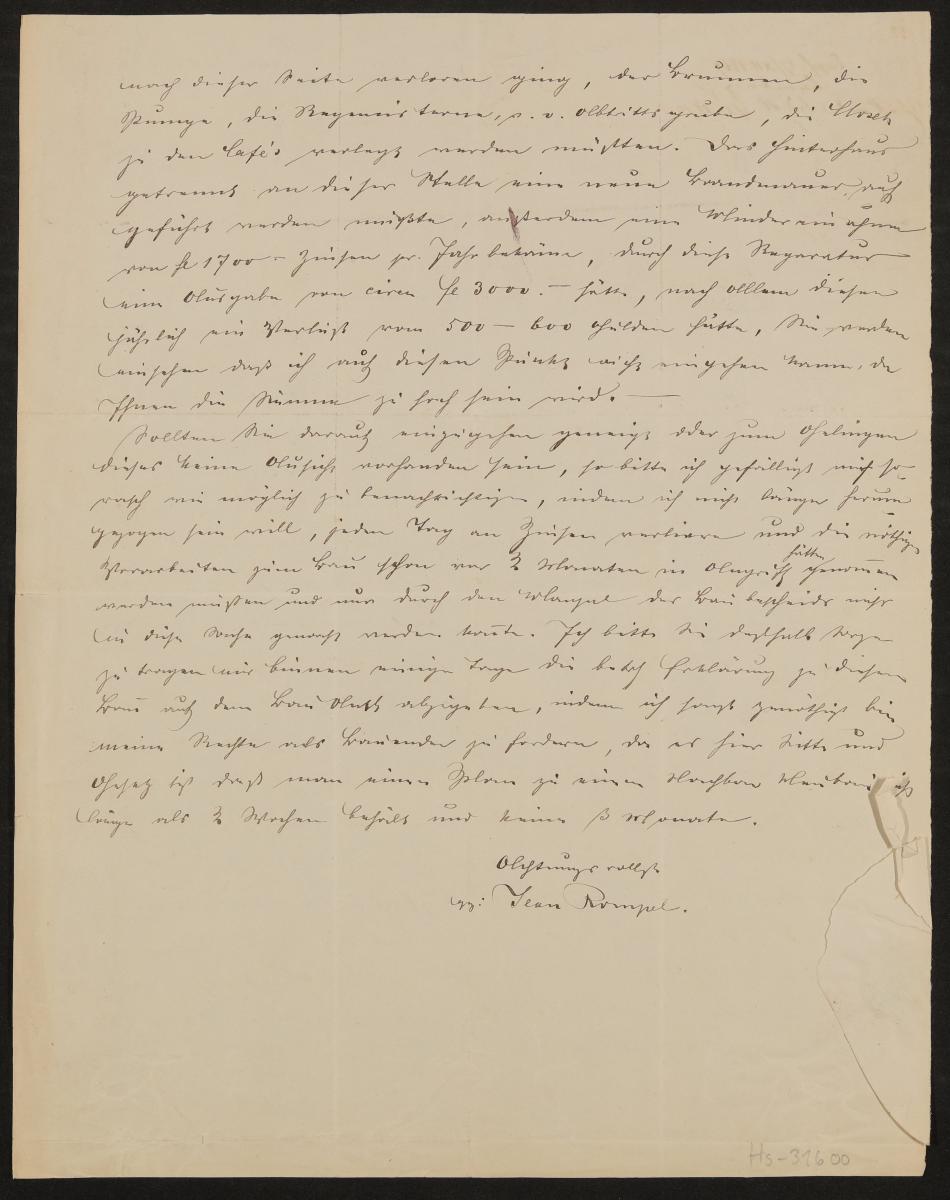 nach dieser Seite verloren ging, der Brunnen, die
Pumpe, die Regencisterne, s. v. Abtrittsgrube, die Closets
zu den Café's verlegt werden müßten. Das Hinterhaus
getrennt an dieser Stelle eine neue Brandmauer auf
geführt werden müßte, außerdem eine Mindereinahme
von fl 1700 – Zinsen pr. Jahr bekäme, durch diese Reparatur
eine Ausgabe von circa fl 3000.– hätte, nach Allem diesen
jährlich ein Verlust vom 500 – 600 Gulden hätte, Sie werden
einsehen daß ich auf diesen Punkt nicht eingehen kann, da
Ihnen die Summe zu hoch sein wird. —
Sollten Sie darauf einzugehen geneigt oder zum Gelingen
dieses keine Aussicht vorhanden sein, so bitte ich gefälligst mich so
rasch wie möglich zu benachrichtigen, indem ich nicht länger herum
gezogen sein will, jeden Tag an Zinsen verliere und die nöthigen
Vorarbeiten zum Bau schon vor 2 Monaten in Angriff hätten genommen
werden müßen und nur durch den Mangel des Baubescheids nichts
in diese Sache gemacht werden konnte. Ich bitte Sie deßhalb Sorge
zu tragen mir binnen einige Tage die betrf Erklärung zu diesem
Bau auf dem Bau Amt abzugeben, indem ich sonst genöthigt bin
meine Rechte als Bauender zu fordern, da es hier Sitte und
Gesetz ist daß man einen Plan zu einem Nachbar Neubau nicht
länger als 2 Wochen behält und keine 3 Monate.
Achtungsvollst
gz: Jean Rompel.
Hs-31600